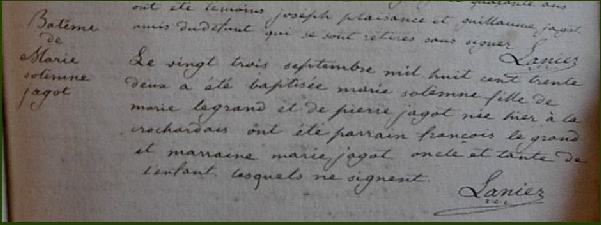 ont été témoins joseph plaisance et guillaume jagot
amis du défunt qui se sont retirés sans signer
Laniez
Batême
de
Marie
solemne
jagot
Le vingt trois septembre mil huit cent trente
deux a été baptisée marie solemne fille de
marie legrand et de pierre jagot née hier à la
crochardais ont été parrain françois le grand
et marraine marie jagot oncle et tante de
l'enfant lesquels ne signent.
Laniez
rec